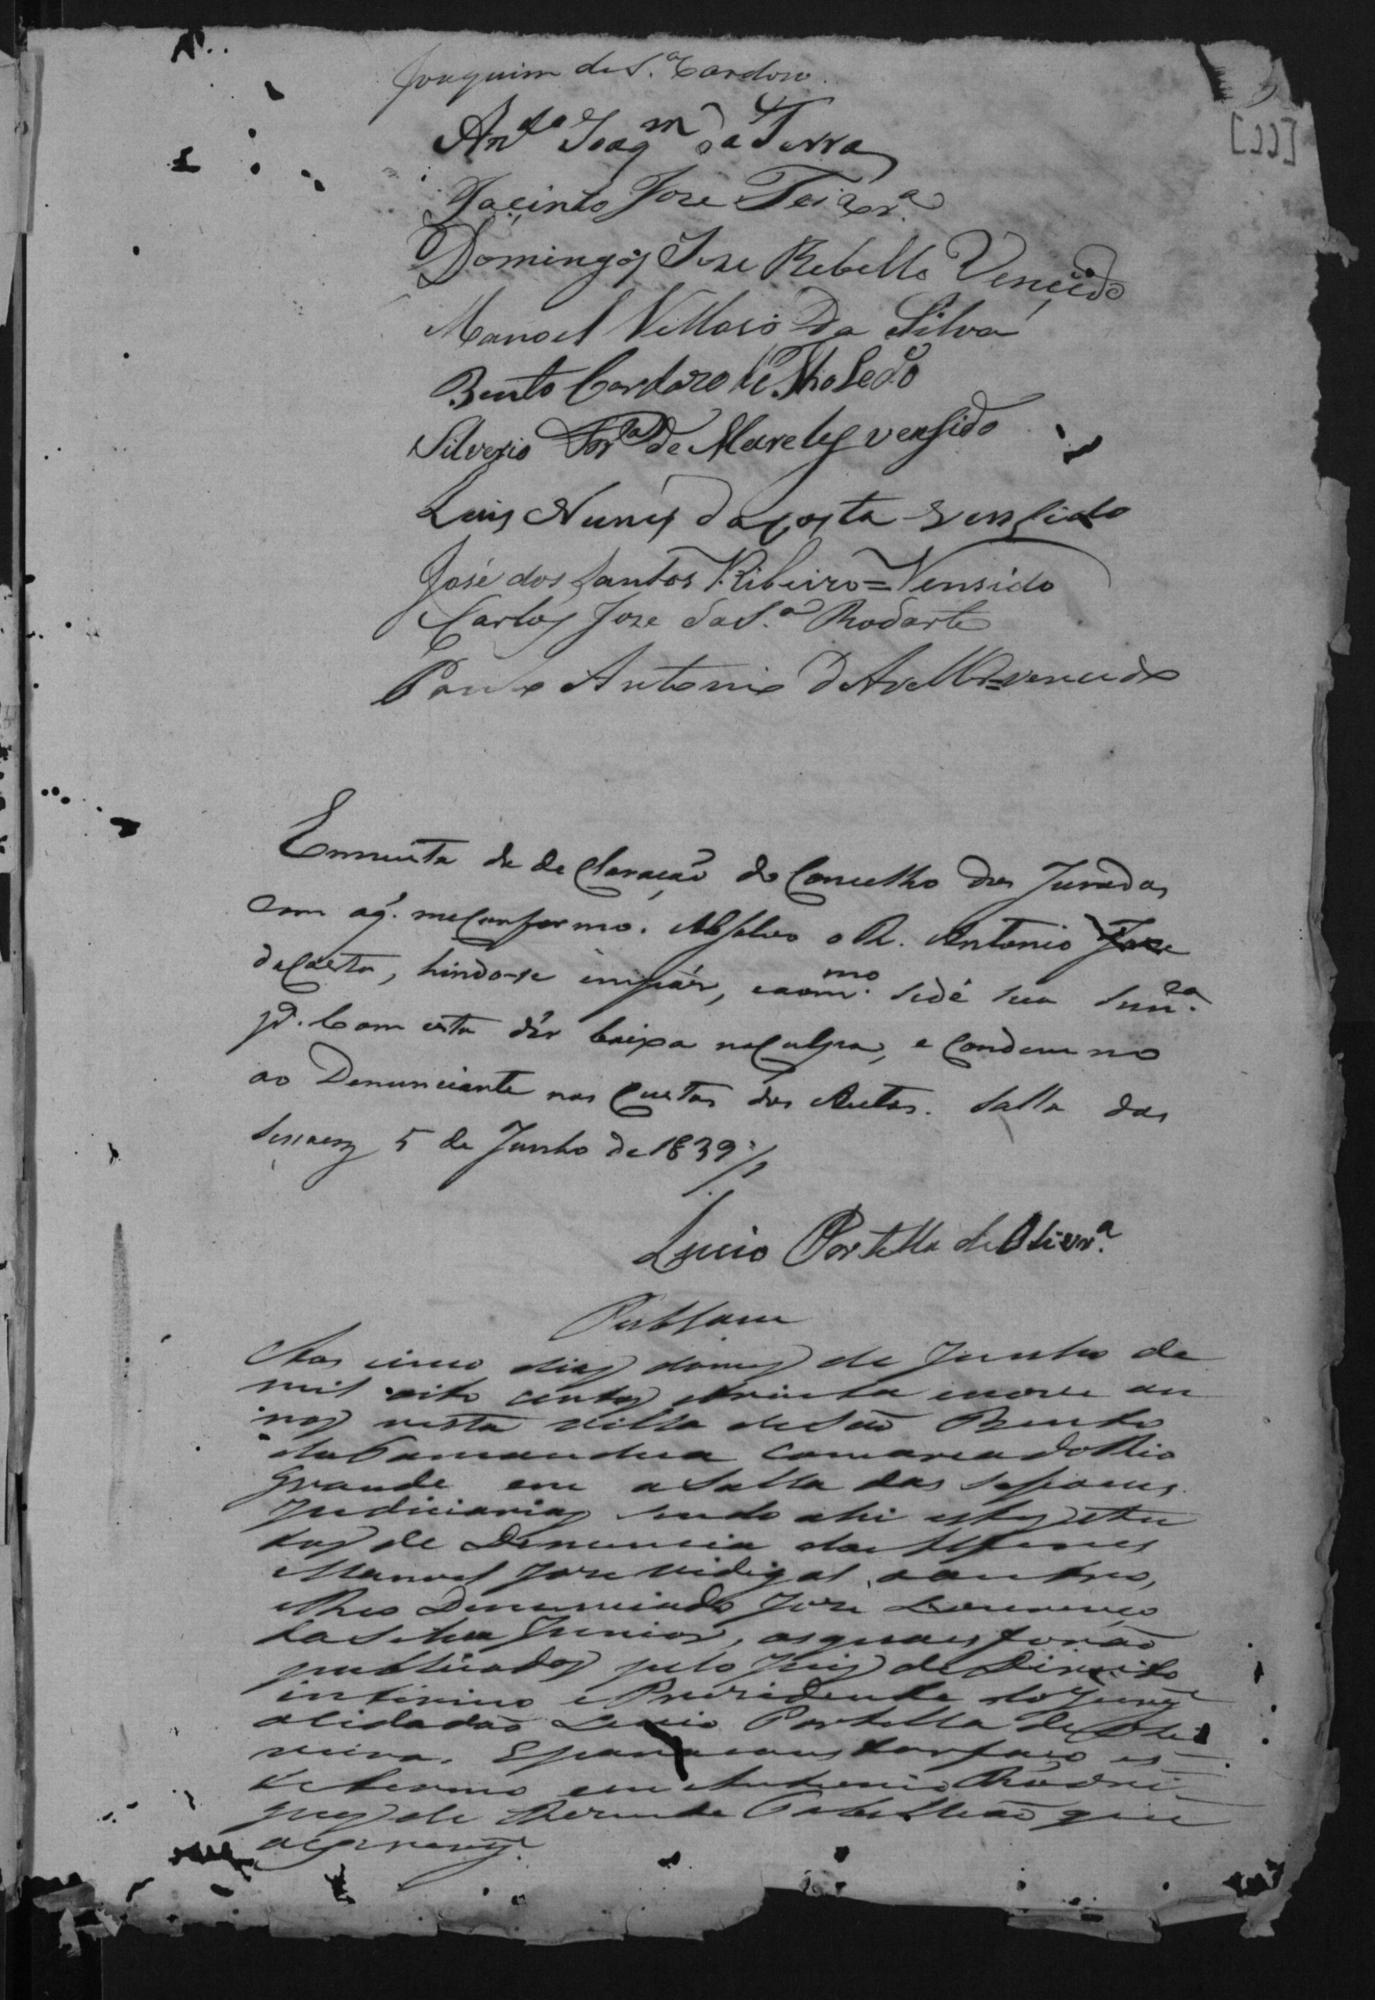 Joaquim de S.ª Cardozo
Joaq.m da Terra
Jacinto José Teixr.ª
Domingos Jose Rebello Vencido
Manoel Vellozo Da Silva
Bento Cardozo de Tholedo
Silverio de vensido
Luis Nunes da Costa vensido
José dos Santos Ribeiro = Vensido
Carlos Jose da S.ª Rodarte
Paulo Antonio d'Avella vencido
[11]
de declaração do Concelho dos Jurados
com a q. me conformo. Absolvo o R. Antonio Jose
da Costa, e a om mo. se dê sua
p.ª. Com esta dár baixa na Culpa, e Condemno
ao Denunciante nas Custas dos Autos. Salla das
Sessoens 5 de Junho de 1839
Lucio Portella de Oliver.ª
Publicam
Aos cinco dias do mes de Junho de
mil oito centos e trinta e nove an
nos nesta Villa de São Bento
do Tamandua Comarca do Rio
Grande em a Salla das Sessoens
Judiciarias sendo ahi estes Au
tos de Denuncia do Alferes
Manoel Jose Vidigal e outro,
Reo Denunciado José Lourenço
da Silva Junior, as quaes forão
publicados pelo Juiz de Direito
interino e Prezidente do Jury
o Cidadão Lucio Portella de Oli
veira. E para constar faço es
te termo eu Antonio Rodri
gues de Tabellião que
a escrevy.